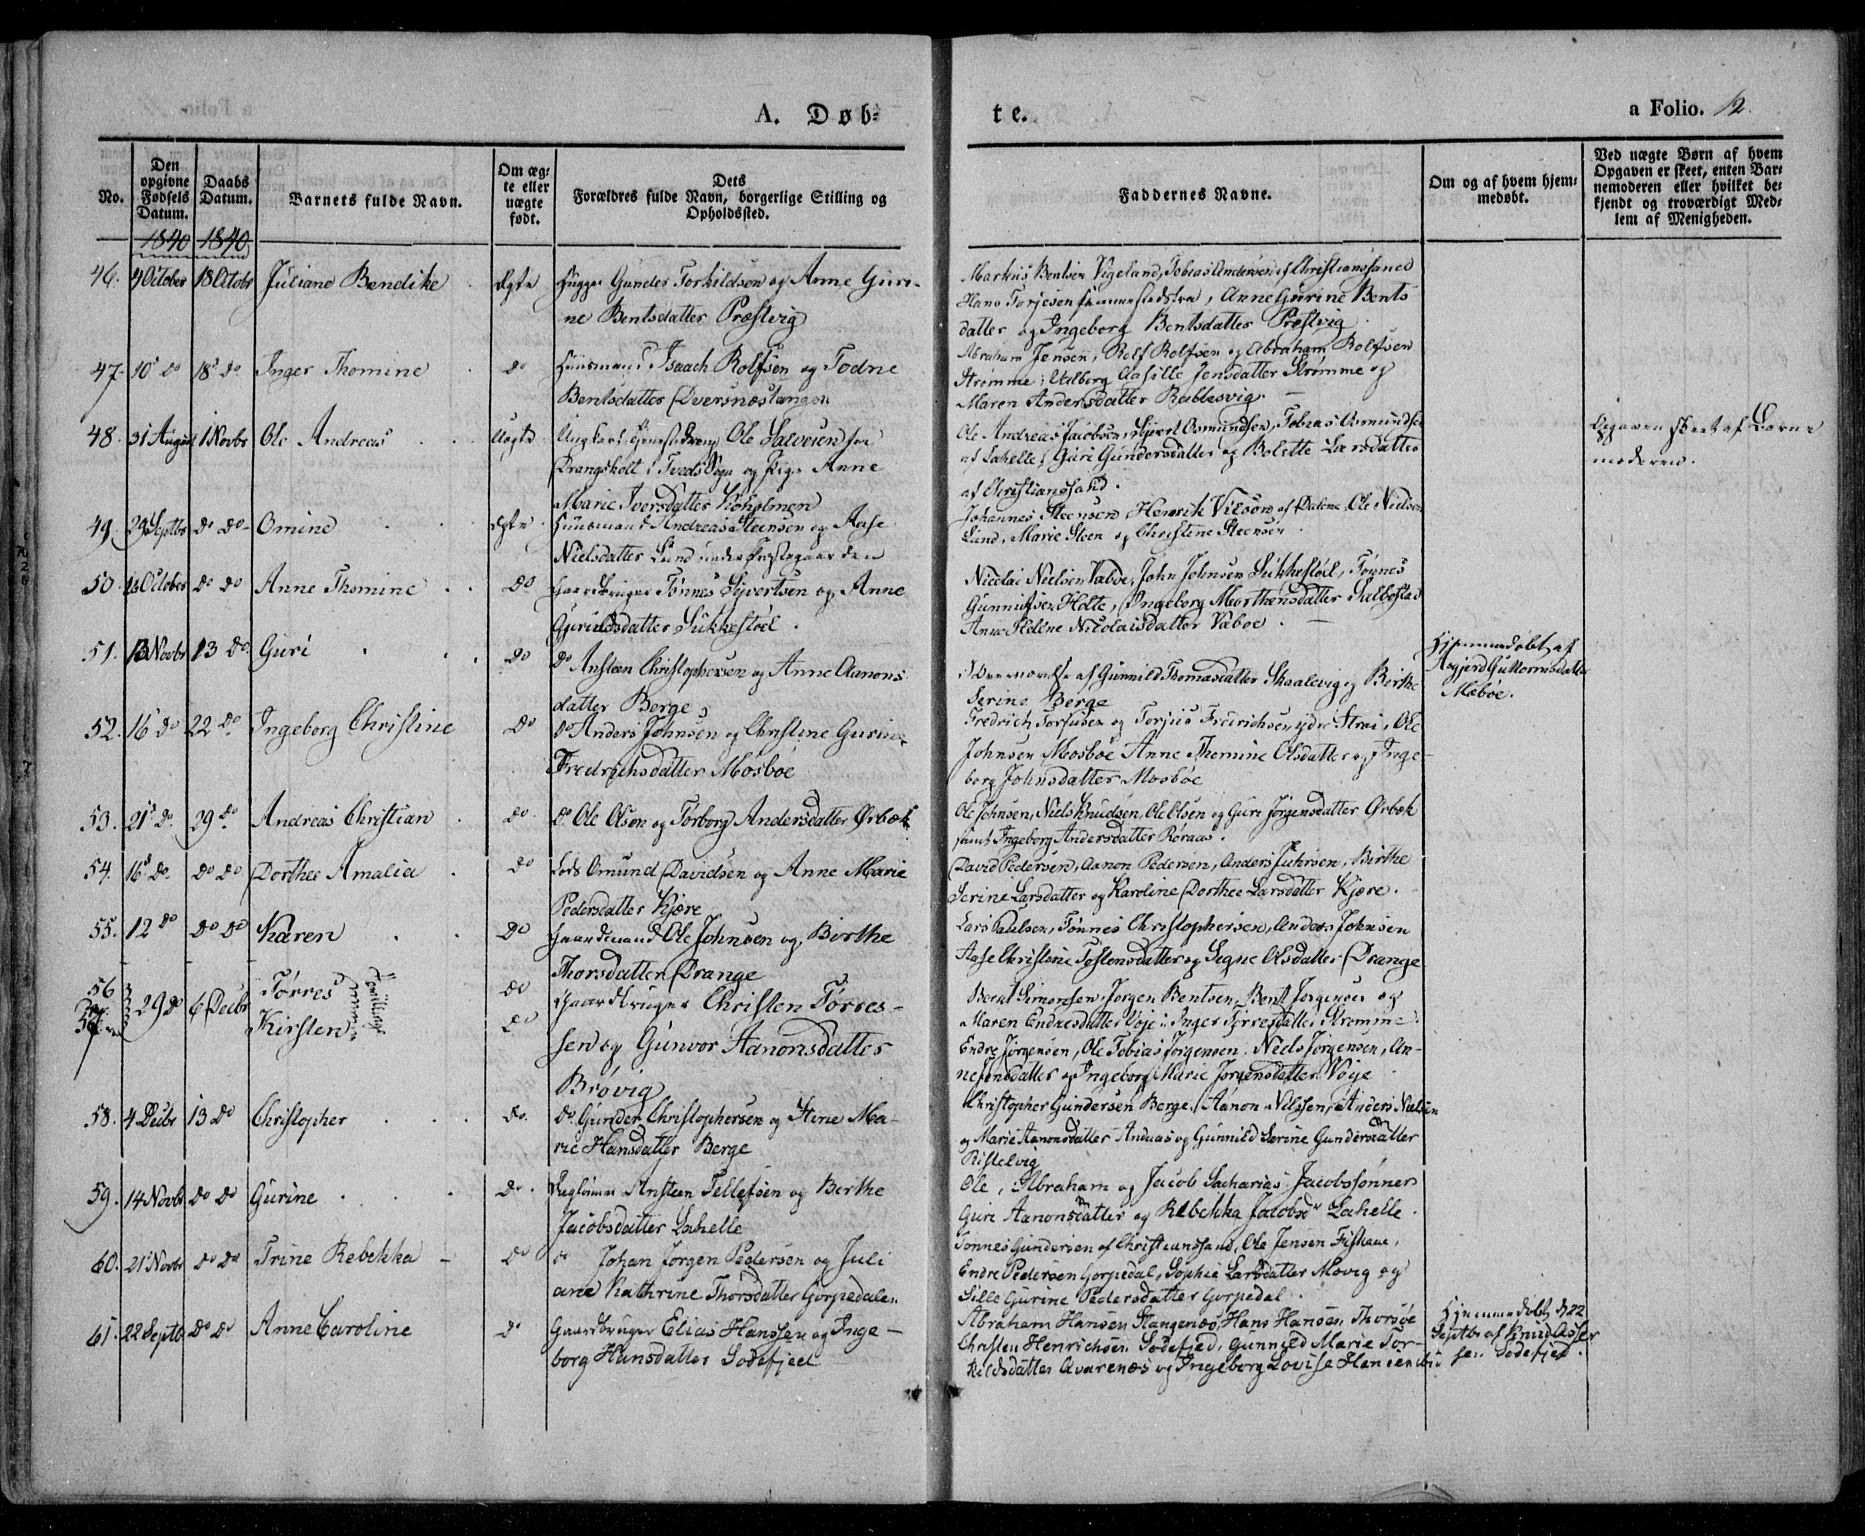 A. Døb-
te.
a Folio. 12.
No.
Den opgivne Fødsels Datum.
Daabs Datum.
Barnets fulde Navn.
Om ægte eller uægte født.
Dets Forældres fulde Navn, borgerlige Stilling og Opholdssted.
Faddernes Navne.
Om og af hvem hjemmedøbt.
Ved uægte Børn af hvem Opgaven er skeet, enten Barnemoderen eller hvilket bekjendt og troværdigt Medlem af Menigheden.
1840 1840
46. 4 October 18 Octobr Juliane Bendike Ægte Gunder Torkildsen og Anne Guri-
ne Bentsdatter Præstvig
Markus Bentsen Vigeland, Tobias Andersen af Christianssand
Hans Torjesen sammestedsfra, Anne Gurine Bents
datter og Ingeborg Bentsdatter Præstvig
47. 10 do 18 do Inger Thomine do Huusmand Isaach Rolfsen og Todne
Bentsdatter Dversnæstangen
Abraham Jensen, Rolf Rolfsen og Abraham Rolfsen
Strømme, Valborg Aasille Jensdatter Strømme og
Maren Andersdatter Rabbesvig
48. 31 August 1 Novbr Ole Andreas Uægte Ungkarl Ole Salvesen fra
Drangsholt i Tveds Sogn og Pige Anne
Marie Iversdatter Koholmen
Ole Andreas Jacobsen, Sivert Osmundsen, Tobias Osmundsen
Lahelle, Guri Gundersdatter og Bolette Larsdatter
af Christianssand.
Opgaven skeet af Barne
moderen.
49. 29 Septbr do do Omine Ægte Huusmand Andreas Steensen og Aase
Nielsdatter Lund under Præstegaarden
Johannes Steensen, Henrik Vilson af Dalene, Ole Nielsen
Lund, Marie Steen og Christine Steensen
50. October do do Anne Thomine do Gaardbruger Tønnes Syvertsen og Anne
Gurildsdatter Sukkestøel.
Nicolai Nielsen Vaboe, John Johnsen Sukkestøel, Tønnes
Gunnulfsen Holte, Ingeborg Morthensdatter Salbostad
Anne Helene Nicolaisdatter Vaboe.
51. 13 Novbr 13 do Guri do do Ansteen Christophersen og Anne Aanons
datter Berge
af Gunnild Thomasdatter Skaalevig og Birthe
Serine Berge
Hjemmedøbt af
Asgjerd Guttormsdatter
Mæbøe.
52. 16 do 22 do Ingeborg Christine do do Anders Johnsen og Christine Gurine
Fredrichsdatter Mosbøe
Fredrich Torjusen og Torjus Fredrichsen ydre Strai, Ole
Johnsen Mosbøe Anne Thomine Olsdatter og Inge-
borg Johnsdatter Mosbøe
53. 21 do 29 do Andreas Christian do do Ole Olsen og Torborg Andersdatter Ørbæk
Ole Johnsen, Niels Knudsen, Ole Olsen og Guri Jørgensdatter Ørbæk
samt Ingeborg Andersdatter Røraas.
54. 16 do do do Dorthee Amalia do Lods Omund Davidsen og Anne Marie
Pedersdatter Kjære
David Pedersen, Aanon Pedersen, Anders Juhrsen, Birthe
Serine Larsdatter og Karoline Dorthee Larsdatter Kjære.
55. 12 do do do Karen do Gaardmand Ole Johnsen og Birthe
Thorsdatter Drange
Lars Paulsen, Tønnes Christophersen, Anders Johnsen
Aase Christine Tostensdatter og Segne Olsdatter Drange
56 29 do 6 Decbr Tørres do Gaardbruger Christen Tørres-
57 Kirsten Tvillinger do sen og Gunvor Aanonsdatter
Brøvig
Bernt Simonsen, Jørgen Bentsen, Bent Jørgensen og
Maren Endresdatter Vøje, Inger Tørresdatter Strømme
Endre Jørgensen, Ole Tobias Jørgensen, Niels Jørgensen, An-
ne Jensdatter og Ingeborg Marie Jørgensdatter Vøje
58. 4 Decbr 13 do Christopher do. do Gunder Christophersen og Stine Ma-
rie Hansdatter Berge
Christopher Gundersen Berge, Aanon Nilssen, Anders Nielsen
og Marie Aanonsdatter Andaas og Gunnild Serine Gundersdatter
Ristelvig
59. 14 Novbr do do Gurine do Ansteen Tellefsen og Berthe
Jacobsdatter Lahelle
Ole, Abraham og Jacob Zacharias Jacobssønner
Guri Aanonsdatter og Rebekka Jacobsdr Lahelle.
60. 21 Novbr do do Trine Rebekka do do Johan Jørgen Pedersen og Juli
ane Kathrine Thorsdatter Gorpedalen
Tønnes Gundersen af Christianssand, Ole Jensen Fiskaae,
Endre Pedersen Gorpedal, Sophie Larsdatter Møvig og
Sille Gurine Pedersdatter Gorpedal.
61. 22 Septb do do Anne Caroline do Gaardbruger Elias Hanssen og Inge-
borg Hansdatter Sodefjeel
Abraham Hansen Slangenæs, Hans Hansen Thorsøe
Christen Henrichsen Sodefjed, Gunnild Marie Tor-
kildsdatter Qvarenæs og Ingeborg Lovise Hansen
Hjemmedøbt d. 22
Septbr af Knud Asser
sen Sodefjed.